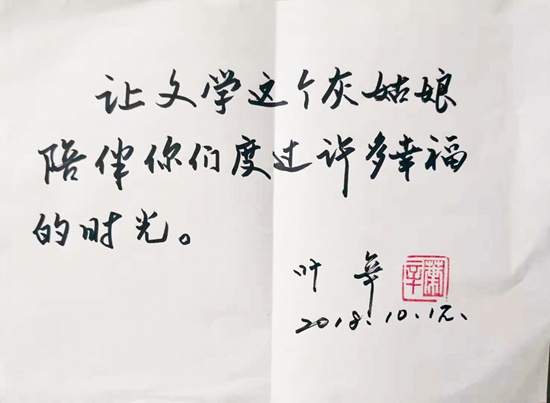 让文学这个灰姑娘
陪伴你们度过许多幸福
的时光。
叶辛
2018.10.12.